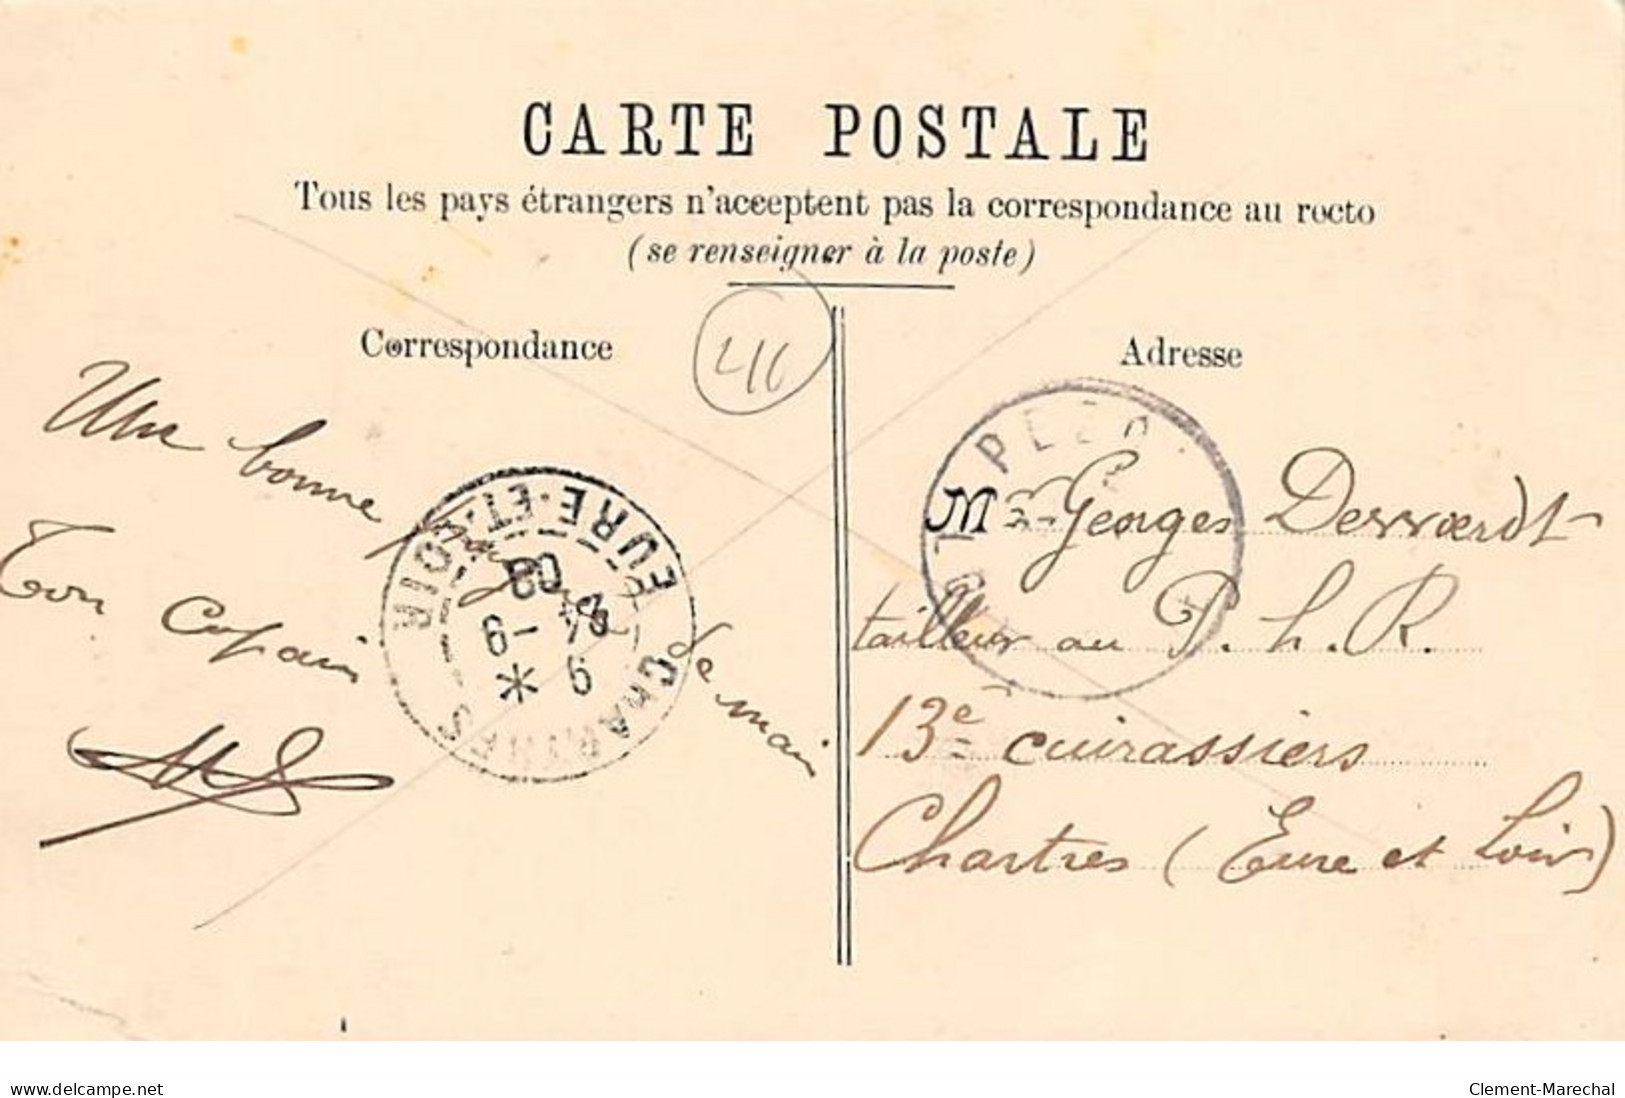 CARTE POSTALE
Tous les pays étrangers n'acceptent pas la correspondance au recto
(se renseigner à la poste)
Correspondance
416
Une bonne poignée de main
Ton copain
CHARTRES
EURE-ET-LOIR
6 - 9
* 6
08
Adresse
Mr Georges
tailleur au P. h. R.
13e cuirassiers
Chartres (Eure et Loir)
www.delcampe.net
Clement-Marechal